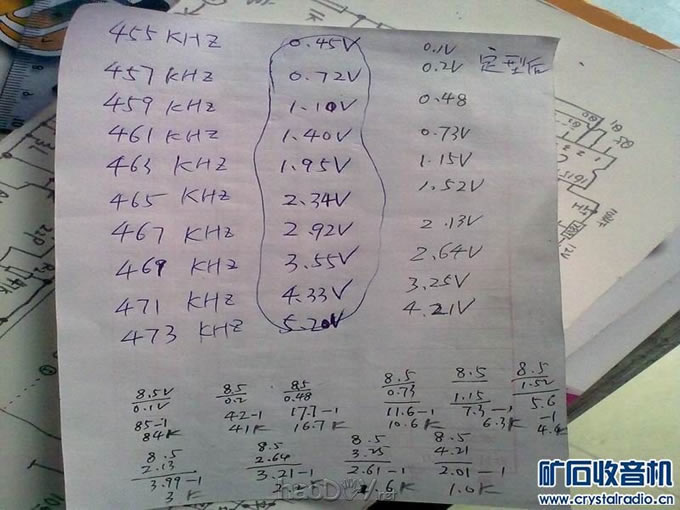 455 KHZ 0.45V 0.1V
457 KHZ 0.72V 0.2V 定型后
459 KHZ 1.10V 0.48
461 KHZ 1.40V 0.73V
463 KHZ 1.95V 1.15V
465 KHZ 2.34V 1.52V
467 KHZ 2.92V 2.13V
469 KHZ 3.55V 2.64V
471 KHZ 4.33V 3.25V
473 KHZ 5.20V 4.21V
8.5V 8.5 8.5 8.5 8.5 8.5
0.1V 0.2 0.48 0.73 1.15 1.52
85-1 42-1 17.7-1 11.6-1 7.3-1 5.6-1
84K 41K 16.7K 10.6K 6.3K 4.
8.5 8.5 8.5 8.5
2.13 2.64 3.25 4.21
3.99-1 3.21-1 2.61-1 2.01-1
3K 2.2K .6K 1.0K
矿石收音机
www.crystalradio.cn